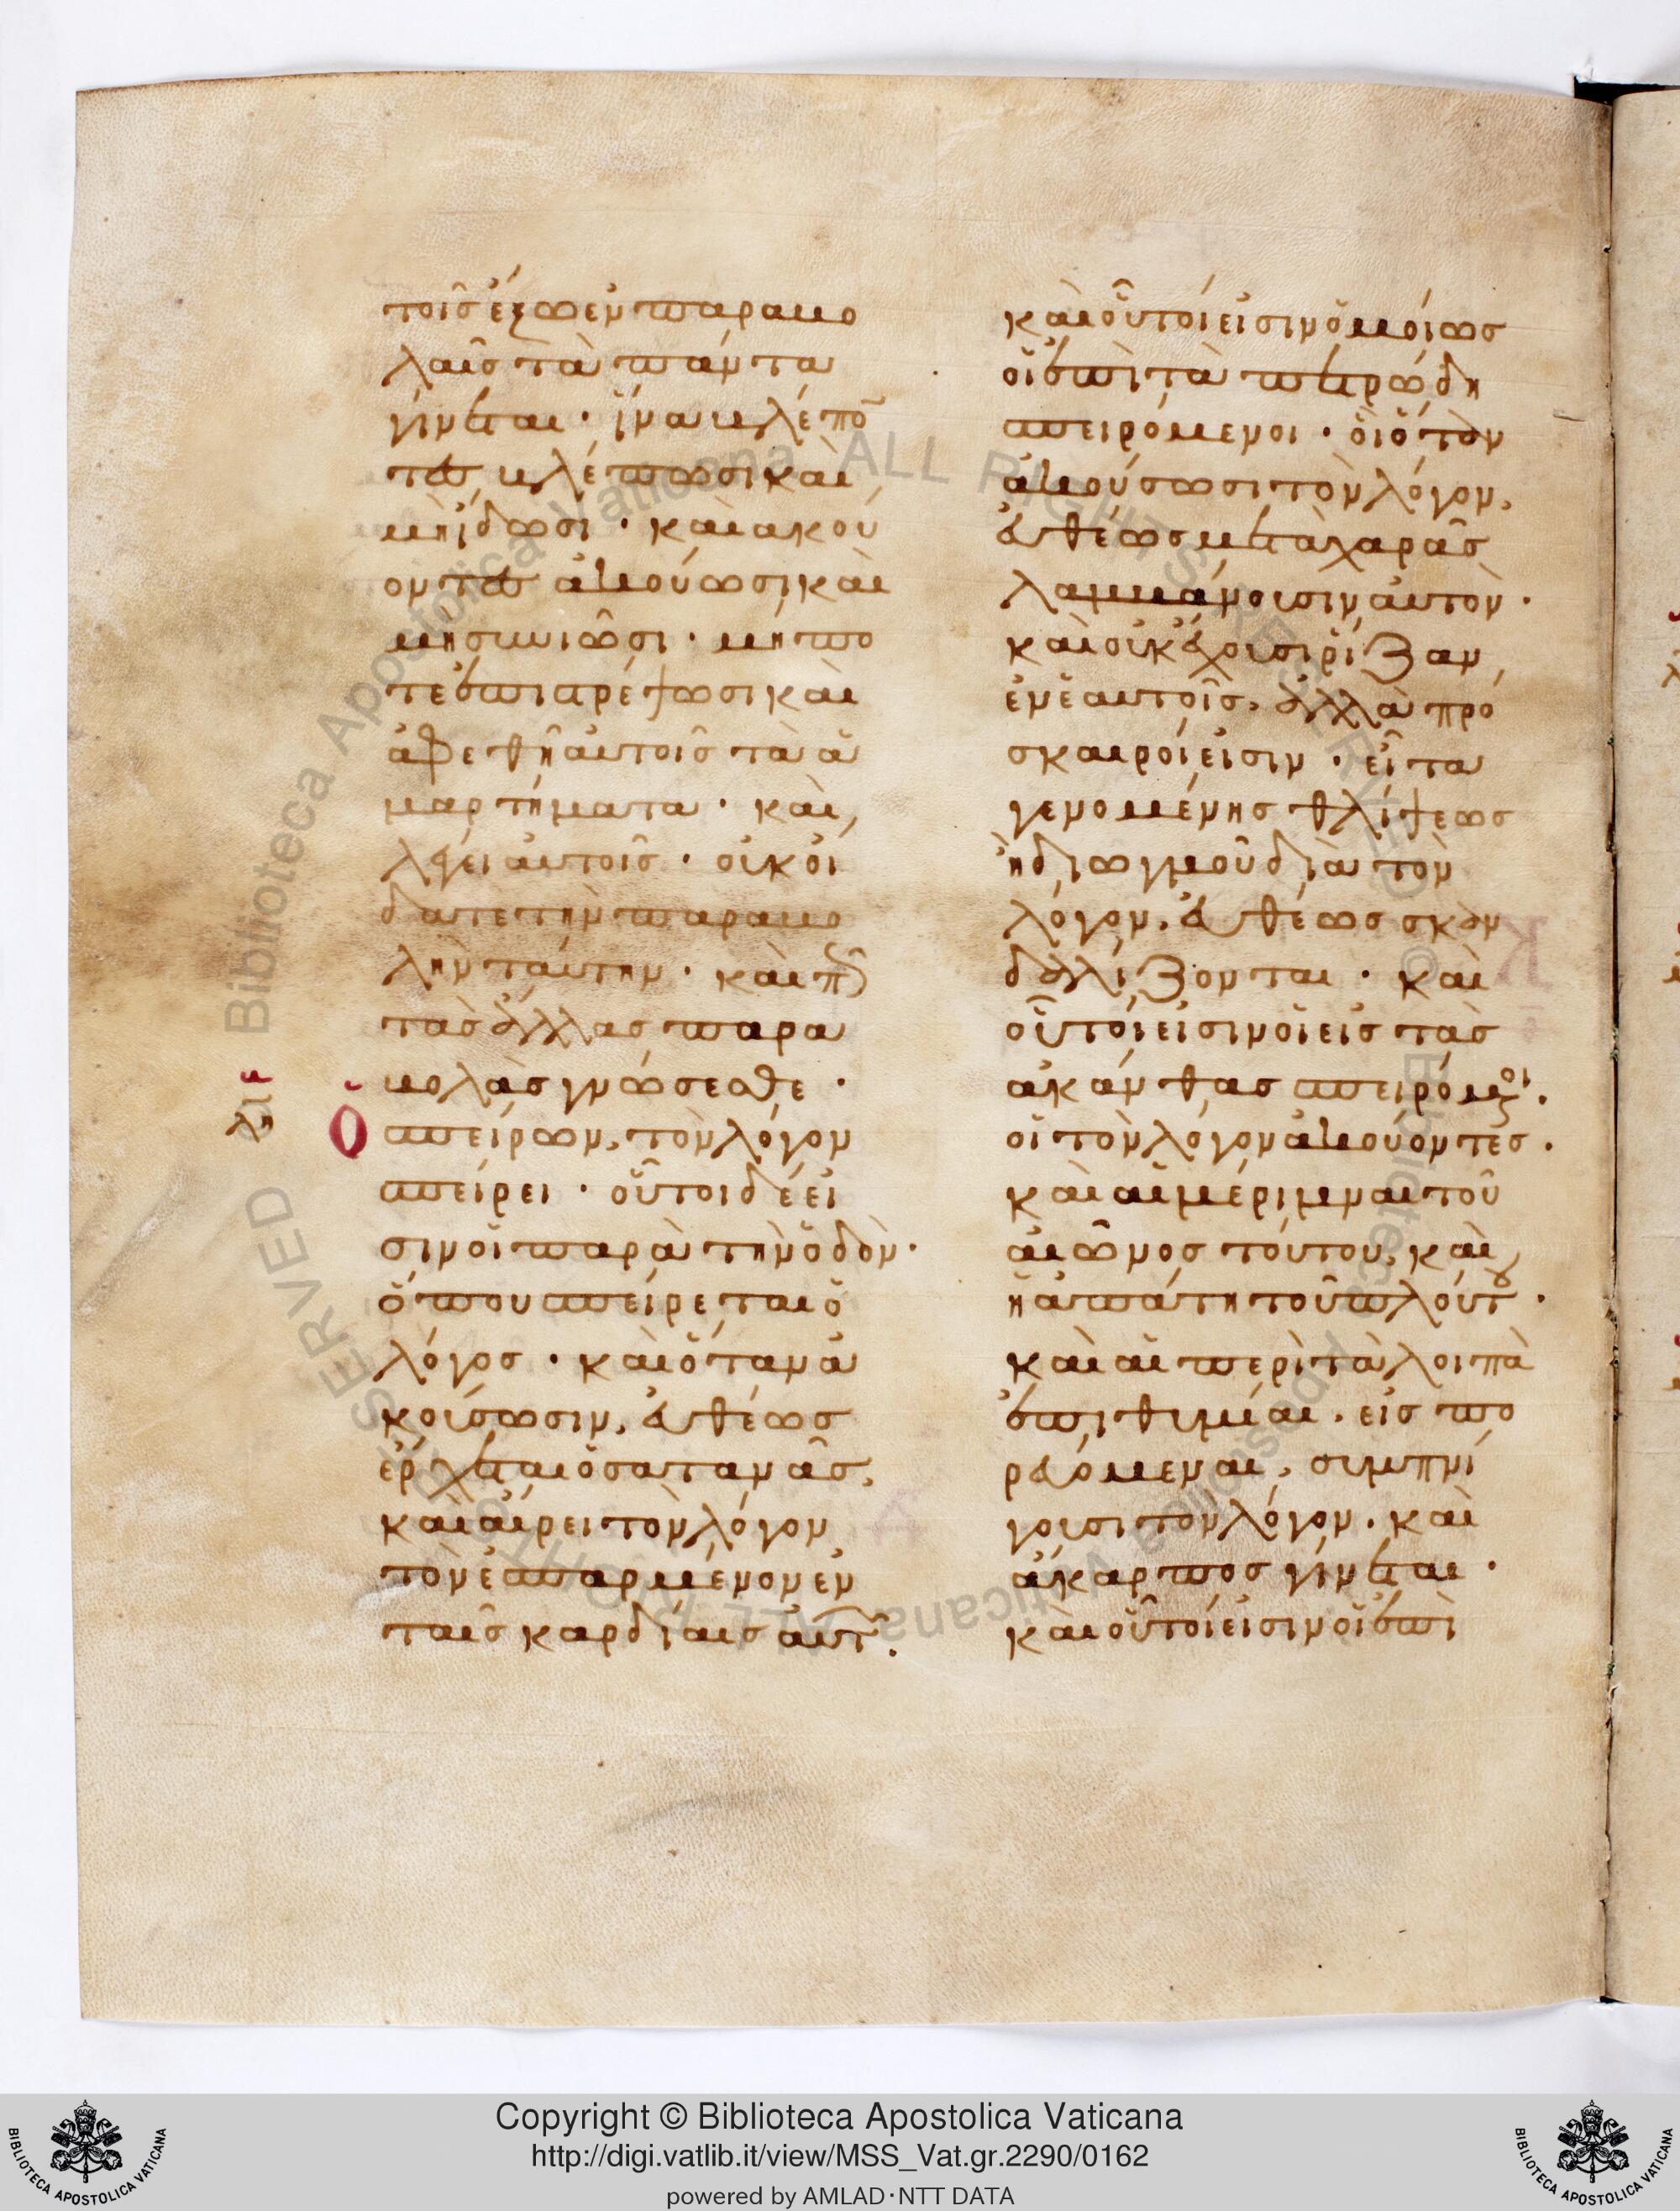 τοῖς ἔξωθεν παραβο
λαῖς τὰ πάντα
γίνεται· ἵνα βλέπο
ντες βλέπωσι καὶ
μὴ ἴδωσι· καὶ ακού
οντες ἀκούωσι καὶ
μὴ συνιῶσι· μήπο
τε ἐπιστρέψωσι καὶ
ἀφεθῆ αὐτοῖς τὰ ἁ
μαρτήματα· καὶ
λέγει αὐτοῖς· οὐκ οἴ
δατε τὴν παραβο
λὴν ταύτην· καὶ πῶς
τὰς ἄλλας παρα
βολὰς γνώσεσθε·
Ὁ σπείρων, τὸν λόγον
σπείρει· οὗτοι δέ εἰ
σιν οἱ παρὰ τὴν ὁδὸν·
ὅπου σπείρεται ὁ
λόγος· καὶ ὅταν ἀ
κούσωσιν, εὐθέως
ἔρχεται ὁ σατανᾶς,
καὶ αἴρει τὸν λόγον
τὸν ἐσπαρμένον ἐν
ταῖς καρδίαις αὐτῶν.
καὶ οὗτοί εἰσιν ὁμοίως
οἱ ἐπὶ τὰ πετρώδη
σπειρόμενοι· οἳ ὅταν
ἀκούσωσι τὸν λόγον,
εὐθέως μετὰ χαρᾶς
λαμβάνουσιν αὐτὸν·
καὶ οὐκ ἔχουσι ρίζαν
ἐν ἑαυτοῖς, ἀλλὰ πρό
σκαιροί εἰσιν· εἶτα
γενομένης θλίψεως
ἢ διωγμοῦ διὰ τὸν
λόγον, εὐθέως σκαν
δαλίζονται· καὶ
οὗτοί εἰσιν οἱ εἰς τὰς
ακάνθας σπειρόμενοι·
οἱ τὸν λόγον ἀκούοντες·
καὶ αἱ μέριμναι τοῦ
αἰῶνος τούτου, καὶ
ἡ ἀπάτη τοῦ πλούτου·
καὶ αἱ περὶ τὰ λοιπὰ
ἐπιθυμίαι. εἰσπο
ρευόμεναι, συμπνί
γουσι τὸν λόγον. καὶ
ἄκαρπος γίνεται·
καὶ οὗτοί εἰσιν οἱ ἐπὶ
Copyright © Biblioteca Apostolica Vaticana
http://digi.vatlib.it/view/MSS_Vat.gr.2290/0162
powered by AMLAD·NTT DATA
BIBLIOTECA APOSTOLICA VATICANA
BIBLIOTECA APOSTOLICA VATICANA